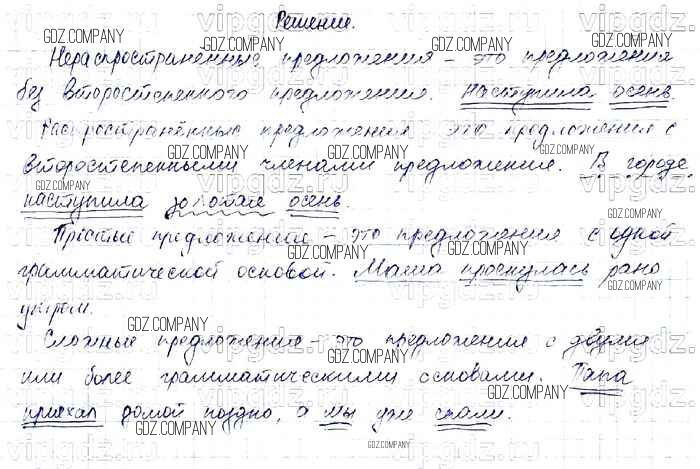 Решение.
Нераспространённые предложения – это предложения
без второстепенного предложения. Наступила осень.
Распространённые предложения это предложения с
второстепенными членами предложения. В городе
наступила золотая осень.
Простые предложения – это предложения с одной
грамматической основой. Маша проснулась рано
утром.
Сложные предложения – это предложения с двумя
или более грамматическими основами. Папа
приехал домой поздно, а мы уже спали.
GDZ.COMPANY
vipgdz.ru